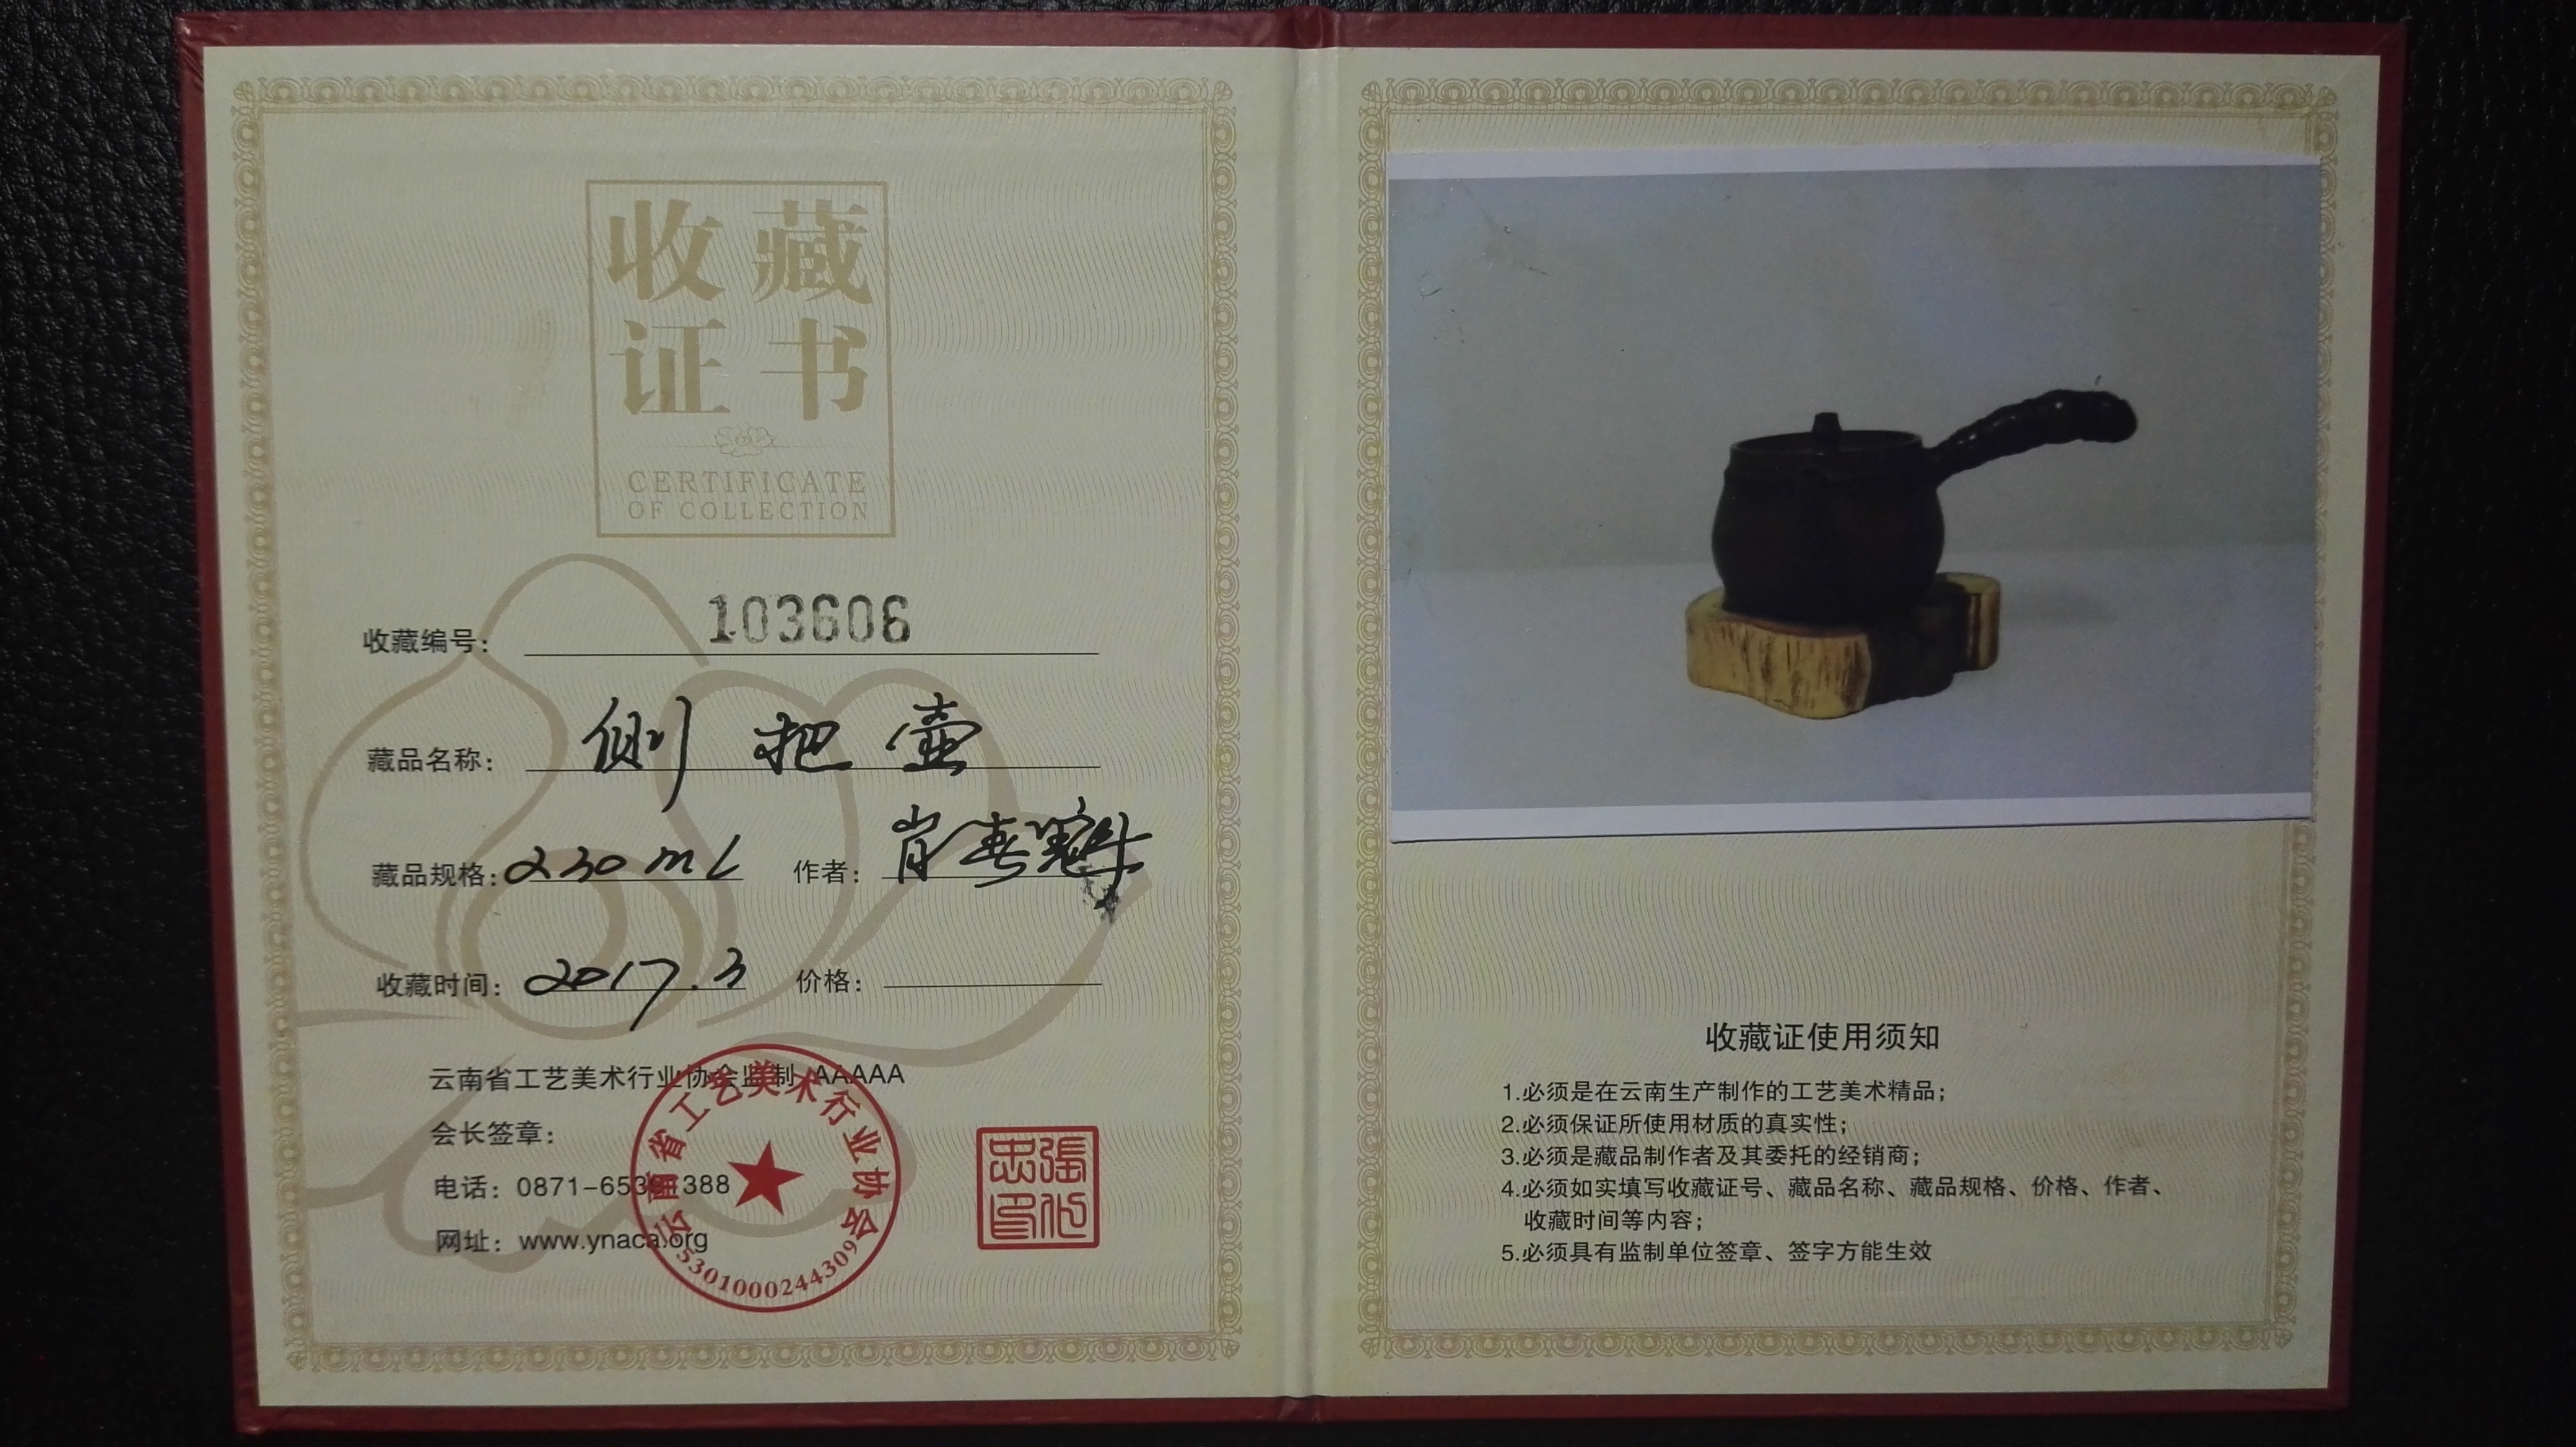 收藏
证书
CERTIFICATE
OF COLLECTION
收藏编号: 103606
藏品名称: 侧把壶
藏品规格: 230ml 作者: 肖春魁
收藏时间: 2017.3 价格:
云南省工艺美术行业协会监制 AAAAA
会长签章:
电话: 0871-653 1388
网址: www.ynaca.org
云南省工艺美术行业协会
5301000244309
張化忠印
收藏证使用须知
1.必须是在云南生产制作的工艺美术精品;
2.必须保证所使用材质的真实性;
3.必须是藏品制作者及其委托的经销商;
4.必须如实填写收藏证号、藏品名称、藏品规格、价格、作者、
收藏时间等内容;
5.必须具有监制单位签章、签字方能生效